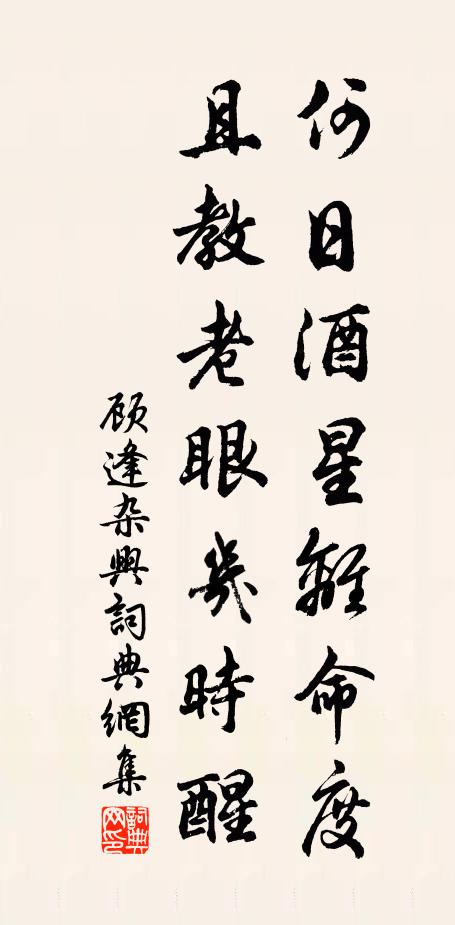 何日酒星離命度
且教老眼幾時醒
顾逢杂興詞典網集
詞典網印